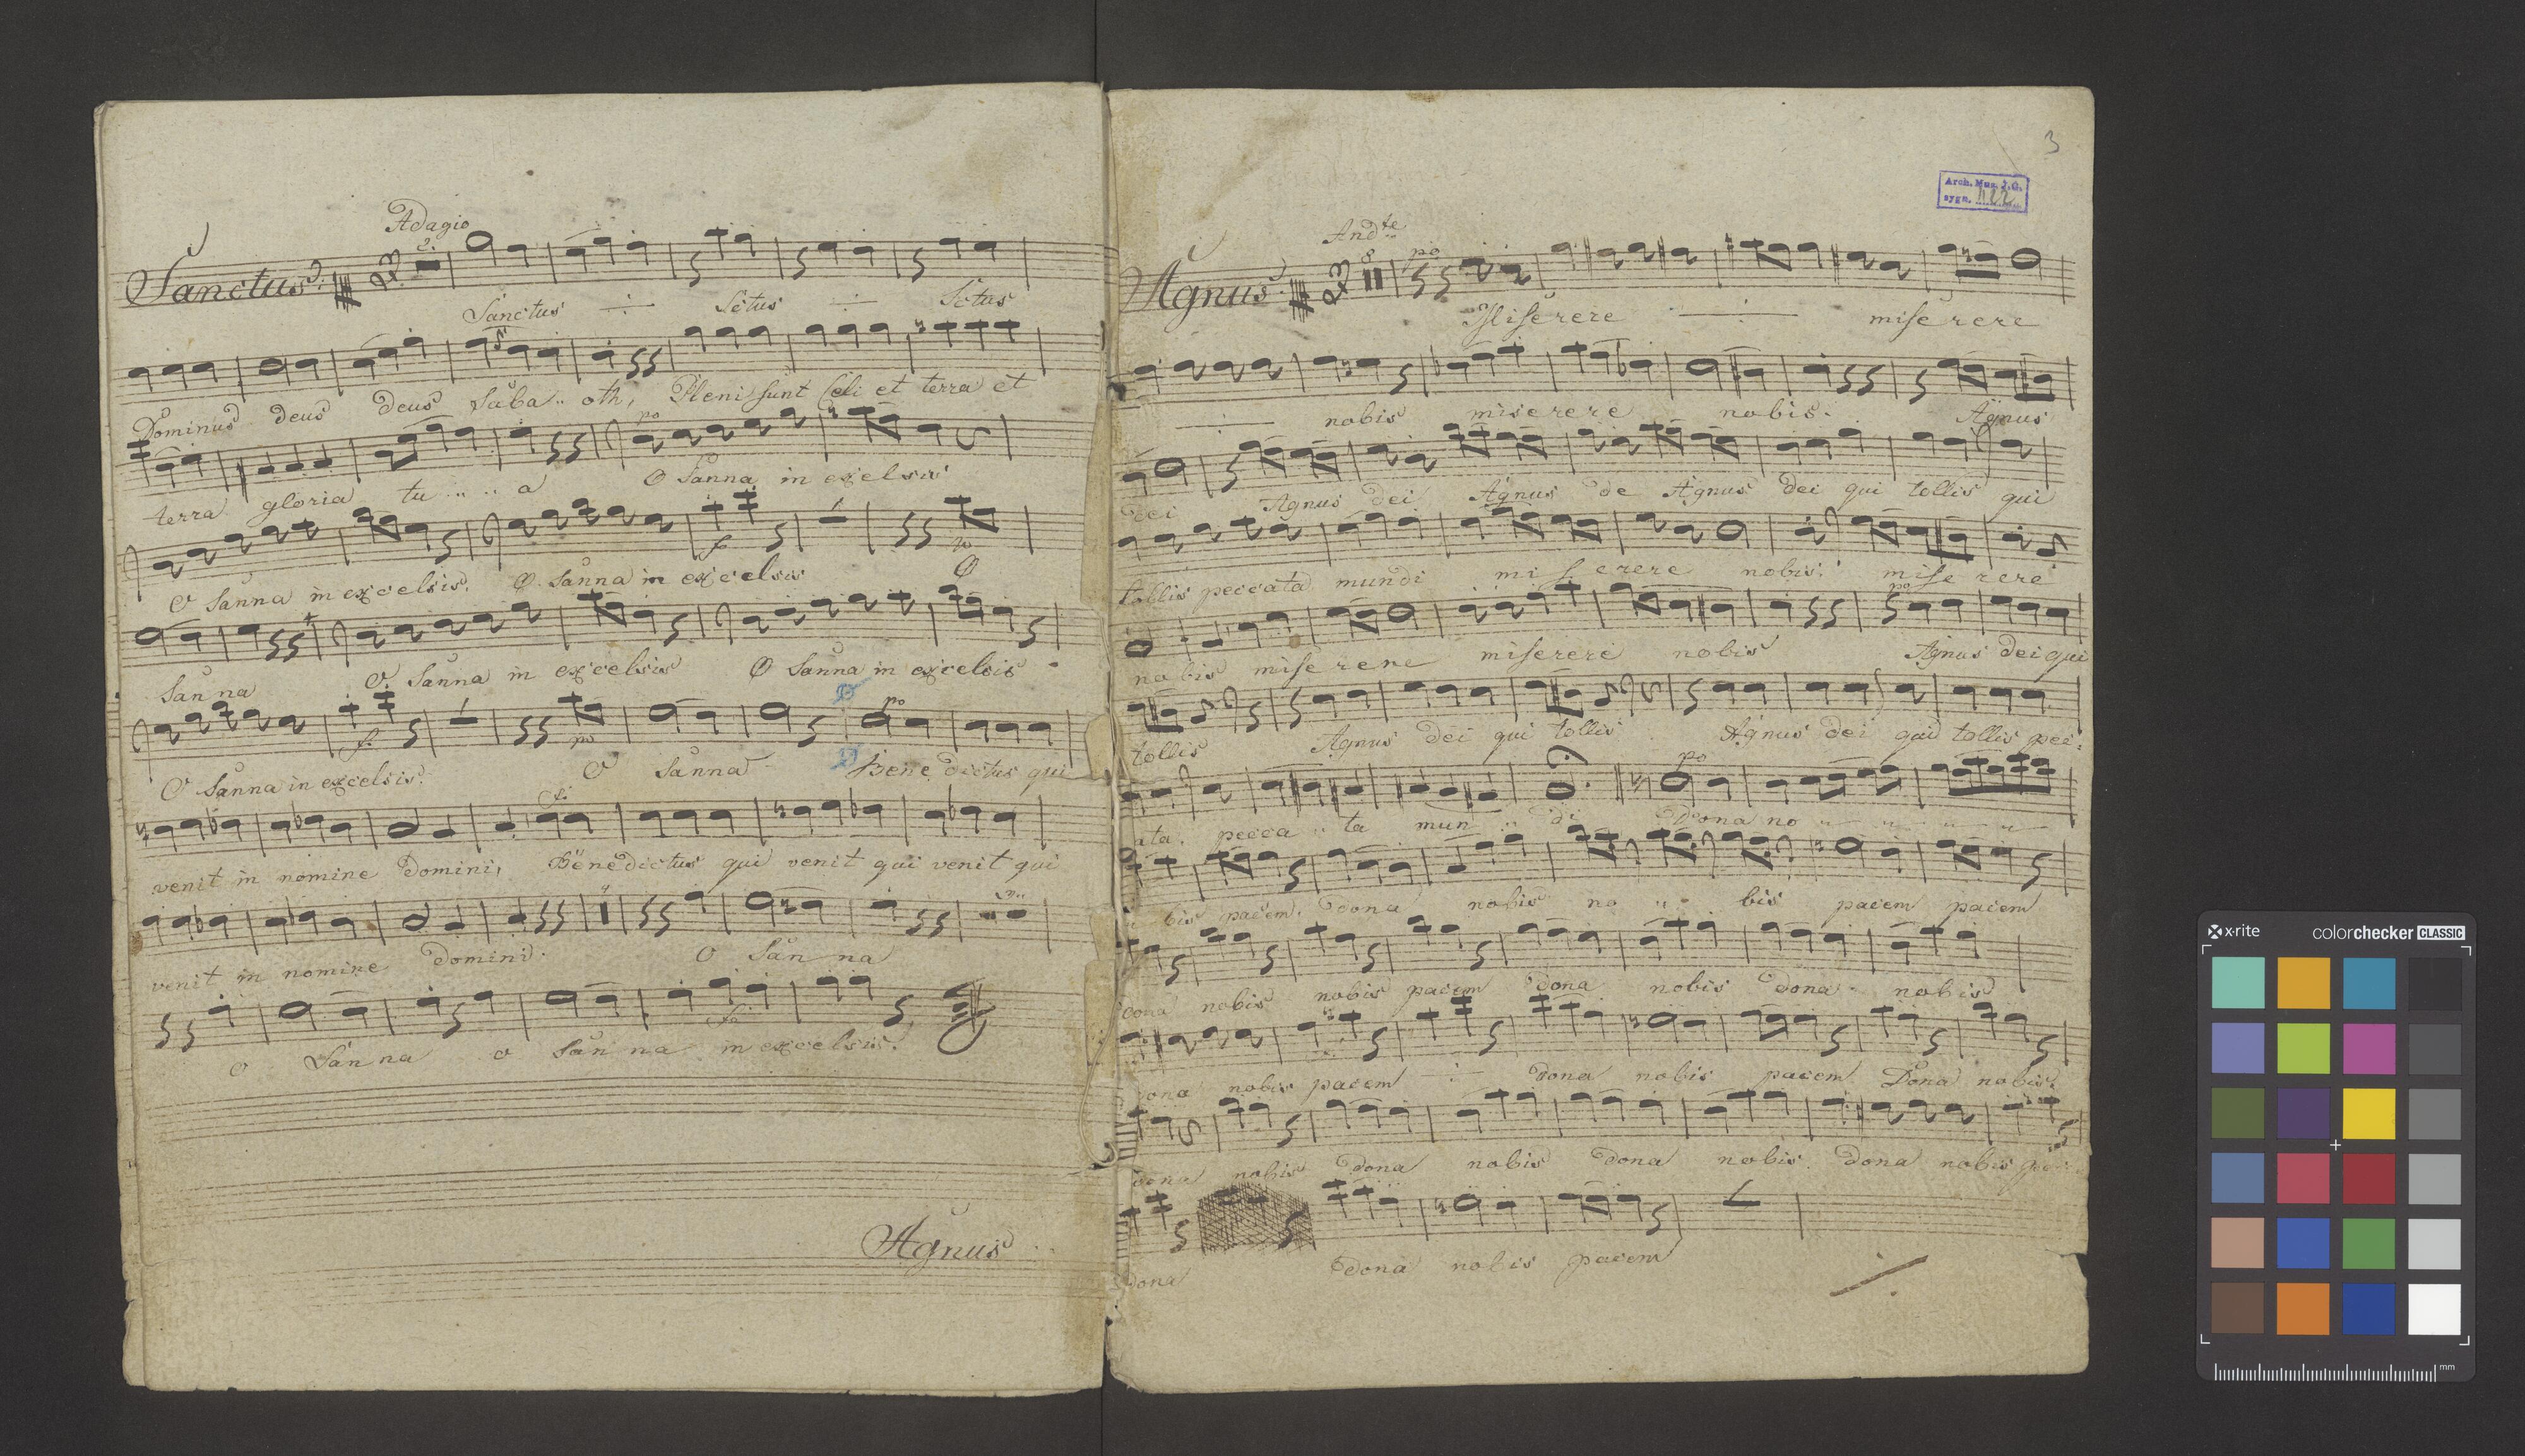 Adagio
2.
Sanctus.
Sanctus ÷ Sctus ÷ Sctus
Dominus deus deus Saba .. oth, Pleni sunt Celi et terra et
po
terra gloria tu .. .. a O Sanna in excelsis
f. p
O Sanna in excelsis. O Sanna in excelsis O
Sanna O Sanna in excelsis O Sanna in excelsis
f. po po
O Sanna in excelsis. O Sanna Bene dictus qui
fo
venit in nomine Domini, Benedictus qui venit qui venit qui
4
venit in nomine domini. O San na
fo
O San na o San na in excelsis.
Agnus
3
Arch. Muz. J.G.
sygn.
Andte
8 po
Agnus.
Miserere ÷ miserere
÷ nobis miserere nobis. Agnus
dei Agnus dei Agnus de Agnus dei qui tollis qui
tollis peccata mundi mi serere nobis. mise rere
po
nobis mise rere miserere nobis Agnus dei qui
tollis Agnus dei qui tollis Agnus dei qui tollis pec:
po
ata. pecca .. ta mun .. di Dona no .. .. .. ..
bis pacem. dona nobis no .. bis pacem pacem
dona nobis nobis pacem dona nobis dona nobis
dona nobis pacem ÷ dona nobis pacem Dona nobis.
dona nobis dona nobis dona nobis dona nobis
dona dona nobis pacem
x-rite
colorchecker CLASSIC
mm